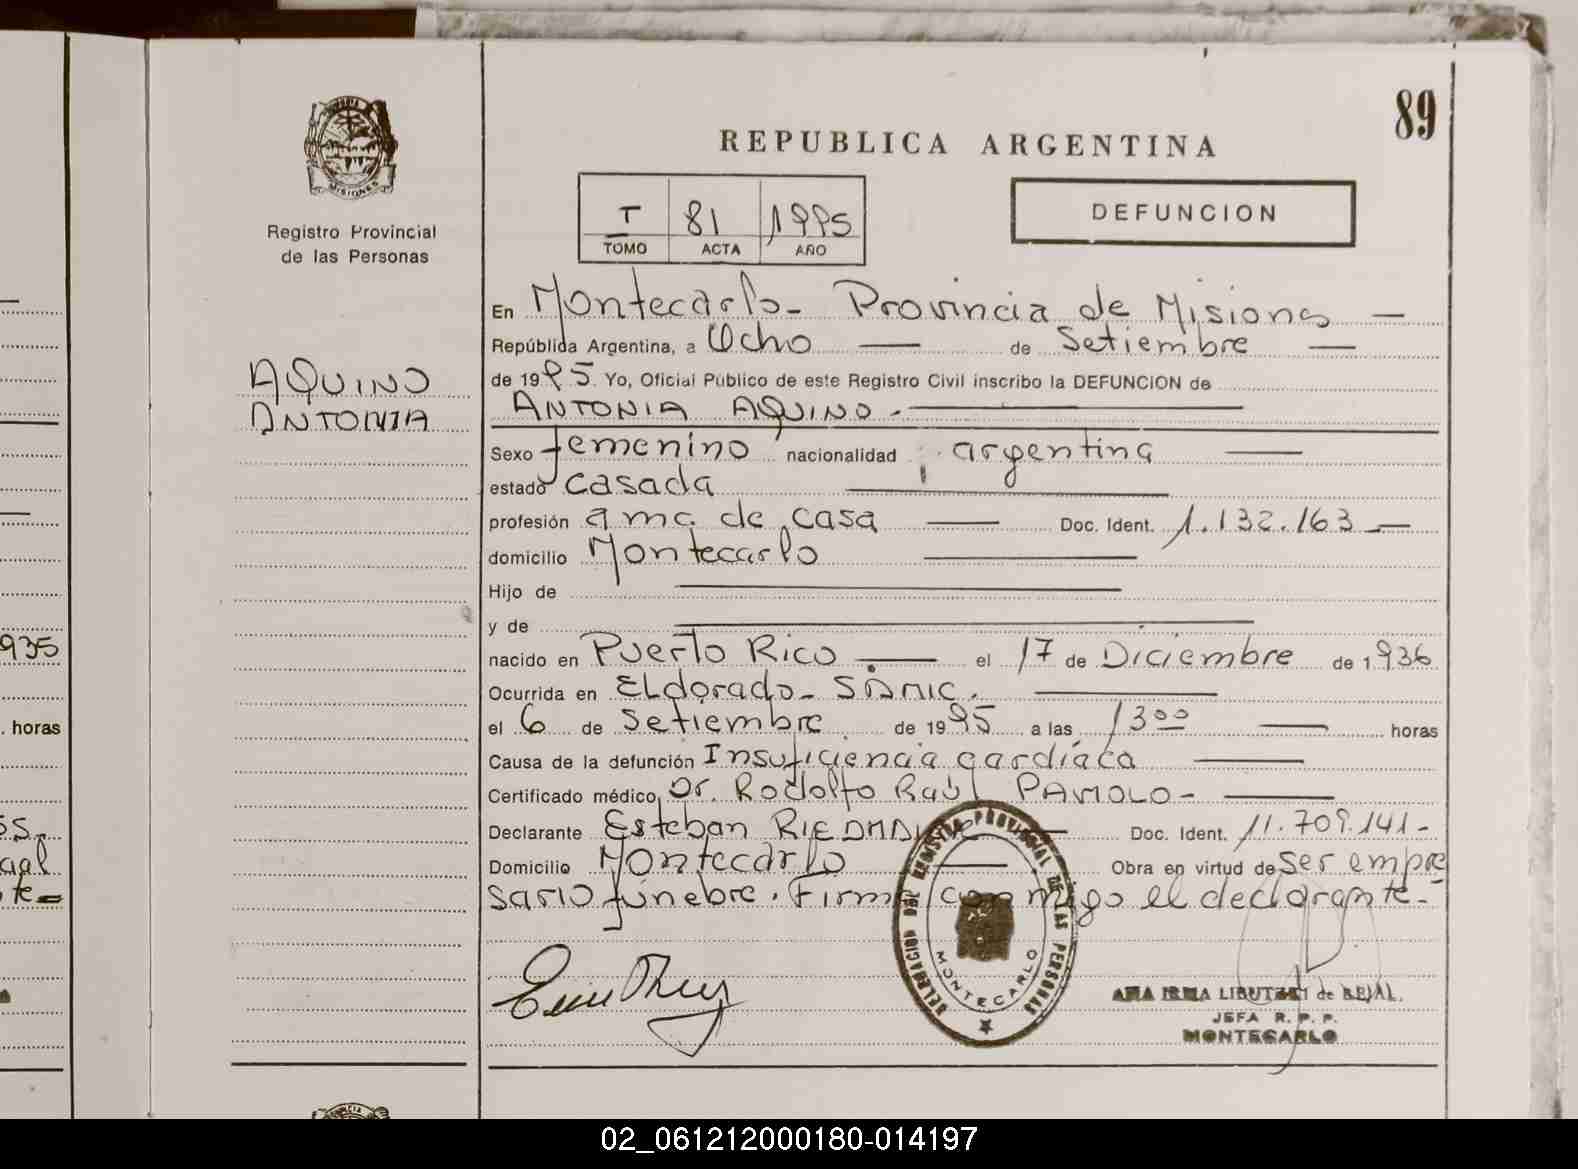 89
REPUBLICA ARGENTINA
MISIONES
Registro Provincial
de las Personas
I 81 1995
TOMO ACTA AÑO
DEFUNCION
AQUINO
ANTONIA
En Montecarlo - Provincia de Misiones —
República Argentina, a Ocho — de Setiembre —
de 1995. Yo, Oficial Público de este Registro Civil inscribo la DEFUNCION de
ANTONIA AQUINO. —
Sexo femenino nacionalidad argentina —
estado casada —
profesión ama de casa — Doc. Ident. 1.132.163 —
domicilio Montecarlo —
Hijo de —
y de —
nacido en Puerto Rico — el 17 de Diciembre de 1936
Ocurrida en ELdorado - SAMIC. —
el 6 de Setiembre de 1995 a las 13 00 — horas
Causa de la defunción Insuficiencia cardíaca —
Certificado médico Dr. Rodolfo Raúl —
Declarante Esteban — Doc. Ident. 11.709.141 -
Domicilio Montecarlo — Obra en virtud de ser empre
sario fúnebre. Firma conmigo el declarante -
DELEGACION DEL REGISTRO PROVINCIAL DE LAS PERSONAS
MONTECARLO
ANA IRMA de
JEFA R. P. P.
MONTECARLO
935
. horas
02_061212000180-014197